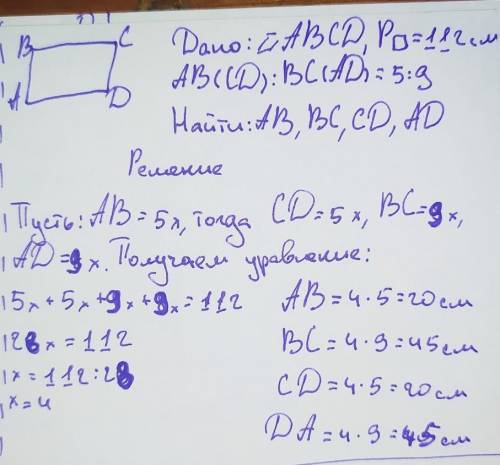 B C
A D
Дано: ▱ABCD, P▱=112см
AB(CD):BC(AD)=5:9
Найти: AB, BC, CD, AD
Решение
Пусть: AB=5x, тогда CD=5x, BC=9x,
AD=9x. Получаем уравление:
5x+5x+9x+9x=112
28x=112
x=112:28
x=4
AB=4·5=20см
BC=4·9=45см
CD=4·5=20см
DA=4·9=45см